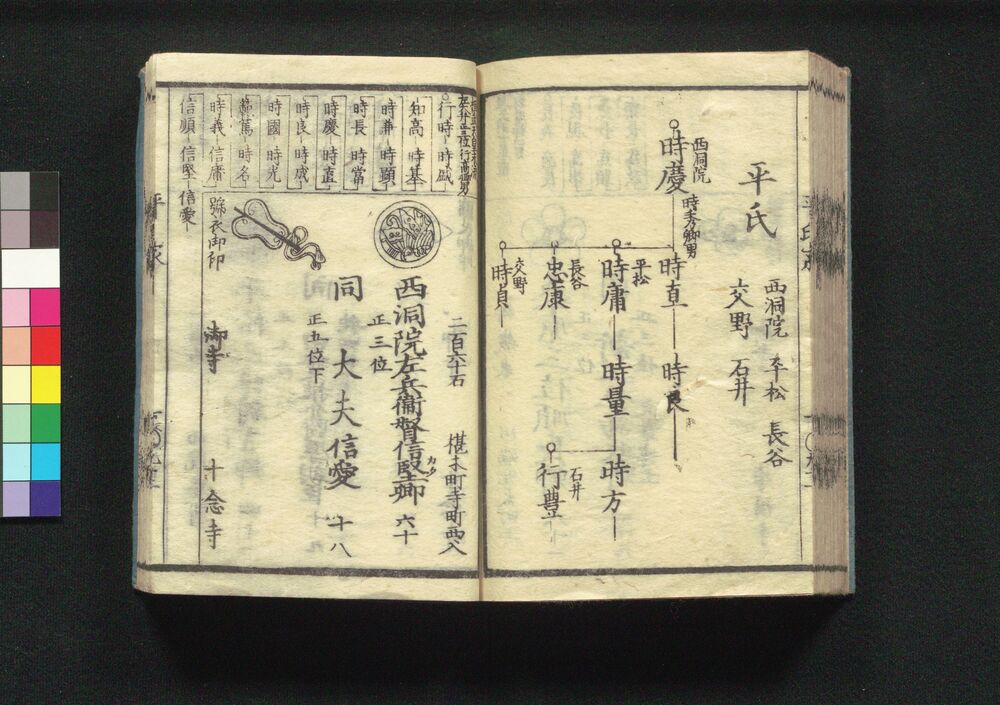 平氏
西洞院 平松 長谷
交野 石井
西洞院
時慶
時秀卿男
時直 時良
平松
時庸 時量 時方
石井
行豊
長谷
忠康
交野
時貞
行時 時盛
知高 時基
時兼 時顕
時長 時當
時慶 時直
時良 時成
時國 時光
範篤 時名
時義 信庸
信順 信堅 信愛
二百六十石 椹木町寺町西入
西洞院左兵衞督信堅卿 六十
カタ
正三位
同 大夫信愛 十八
正五位下
御寺 十念寺